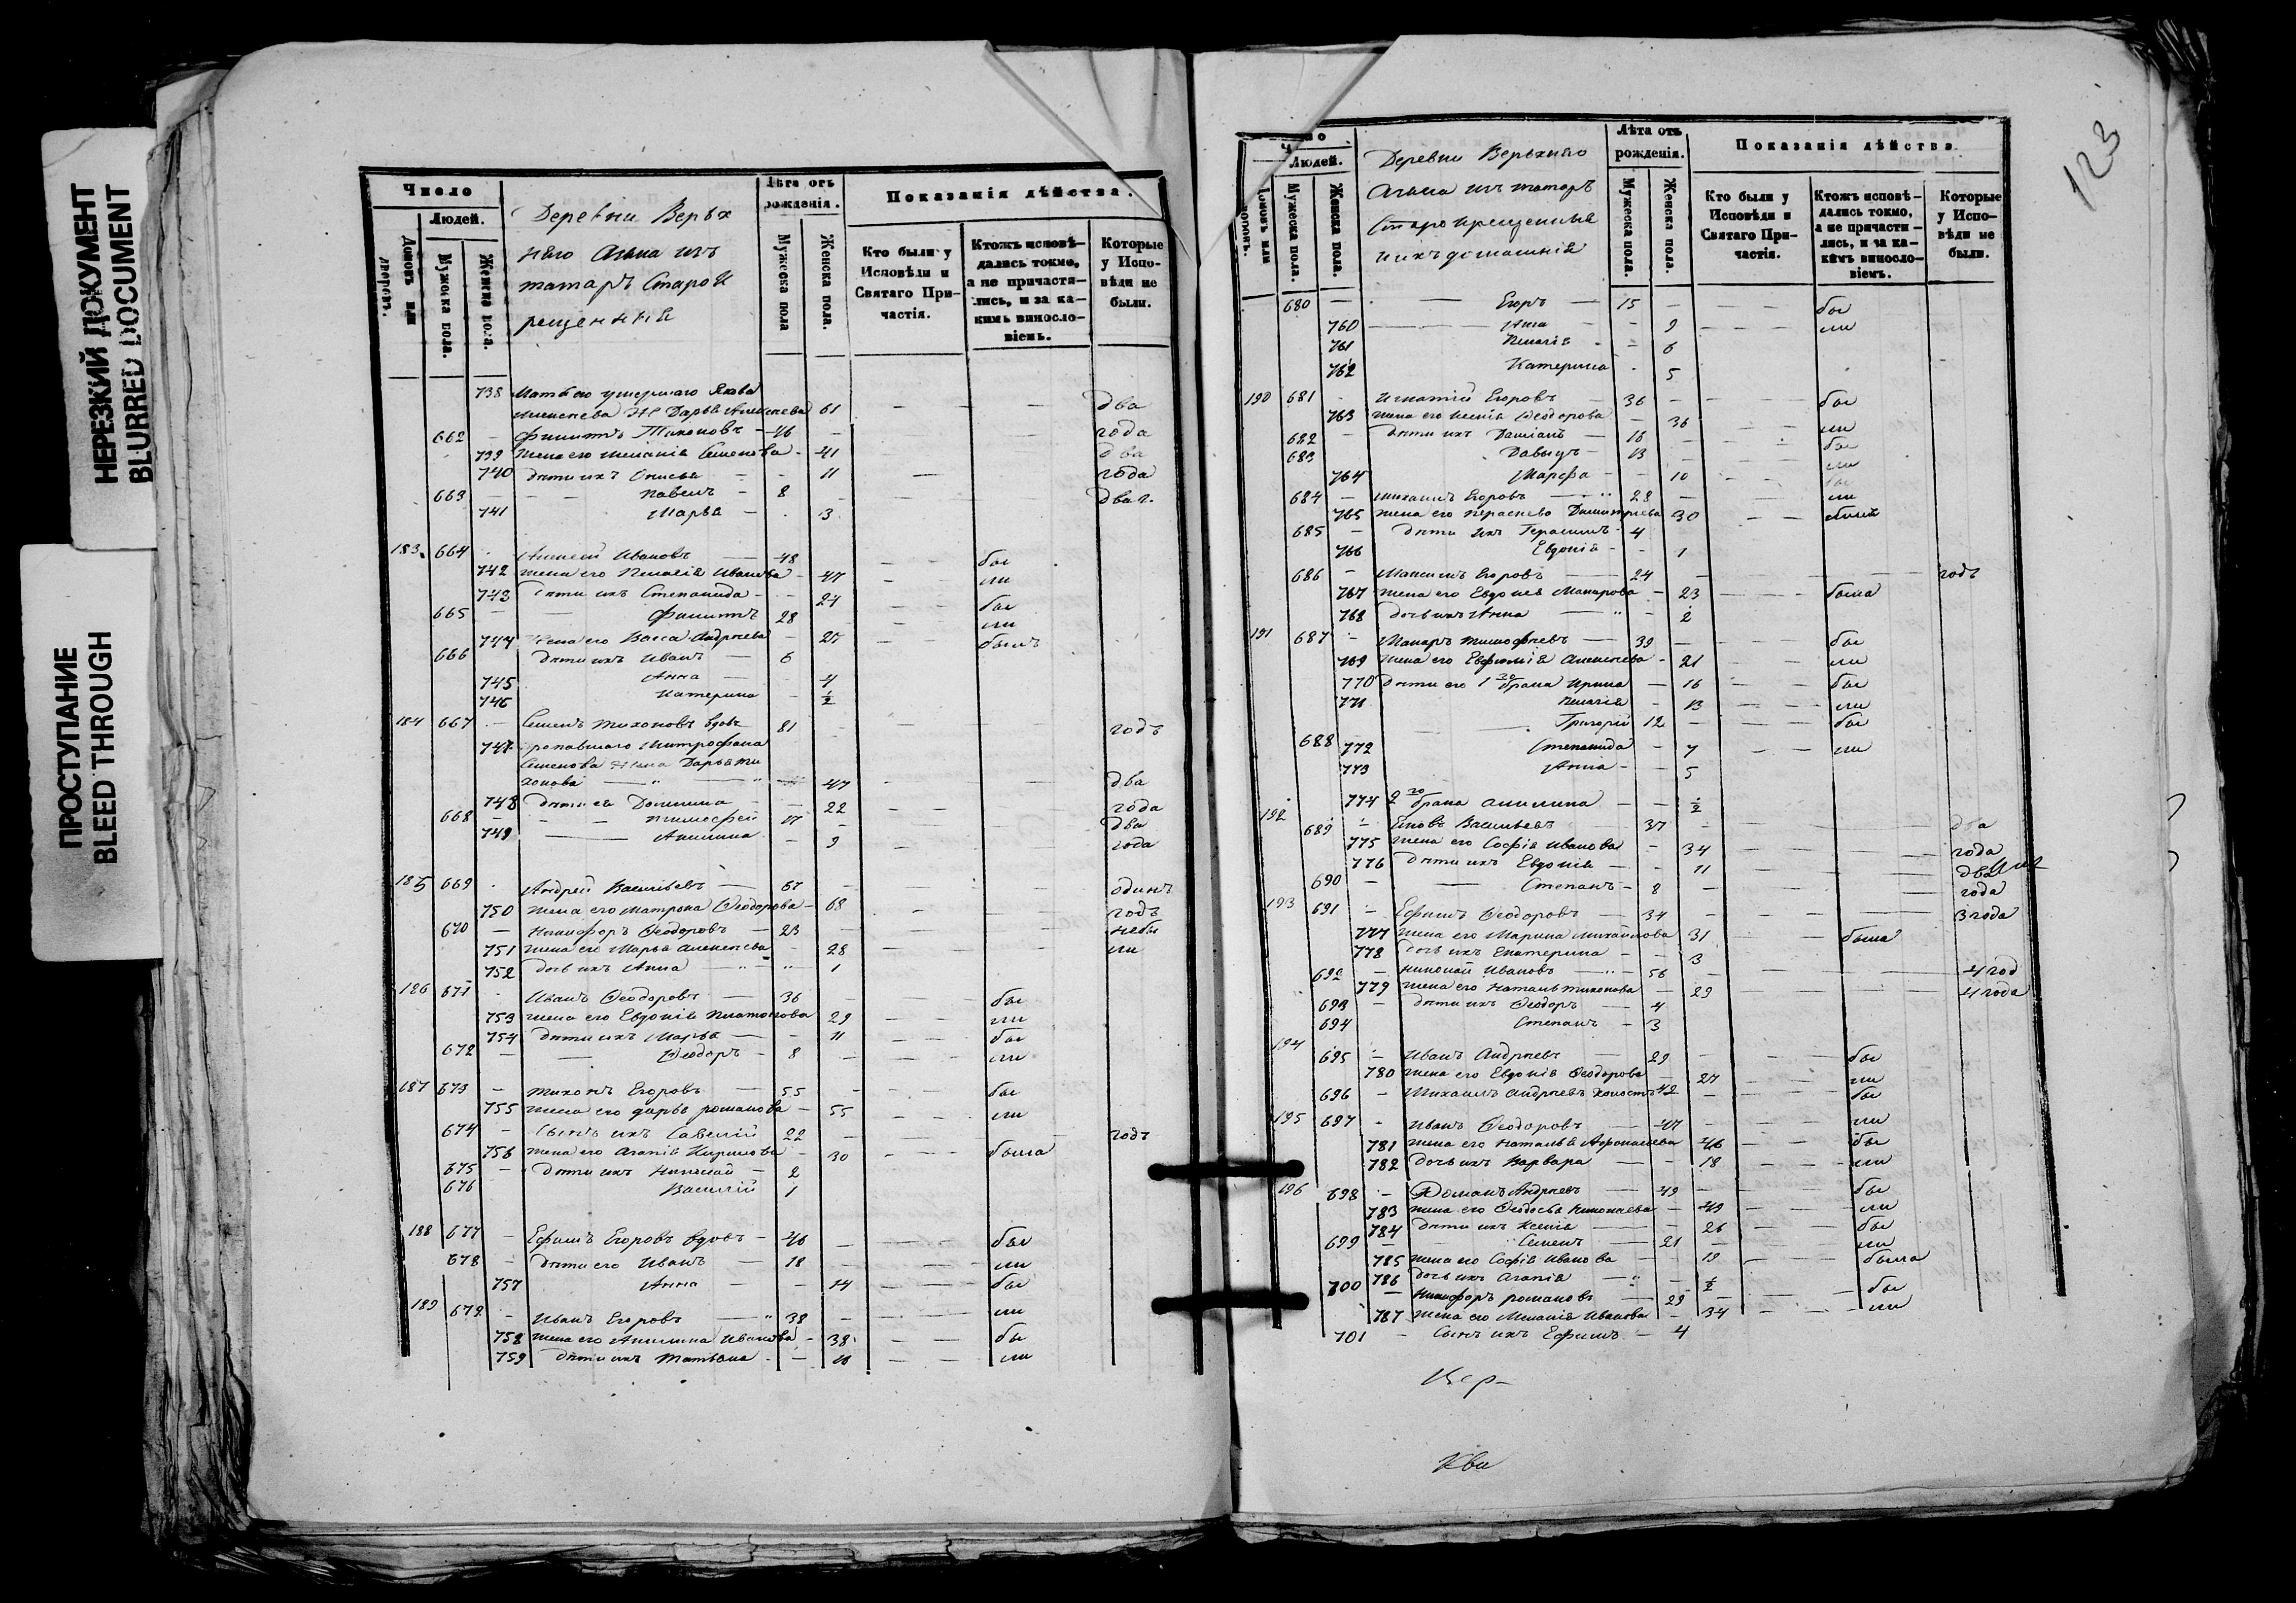 НЕРЕЗКИЙ ДОКУМЕНТ
BLURRED DOCUMENT
ПРОСТУПАНИЕ
BLEED THROUGH
Число
Людей.
Домовъ или дворовъ.
Мужеска пола.
Женска пола.
Деревни Верьх
няго Алата изъ
татаръ Старок
рещенныя
Лѣта отъ рожденія.
Мужеска пола
Женска пола.
Показанія дѣйства.
Кто были у Исповѣди и Святаго Причастія.
Ктожъ исповѣ-
дались токмо,
а не причасти-
лись, и за ка-
кимъ винословіемъ.
Которые у Испо-
вѣди не были.
738 Мать его умершаго Якова
Алексеева Же Дарья Алексеева 61 два
662 Филипъ Тихоновъ 46 года
739 Жена его Меланія Семенова 41 два
740 дѣти ихъ Онисья 11 года
663 Павелъ 8 два г.
741 Марья 3
183 664 Алексей Ивановъ 48 бы
742 Жена его Пелагія Иванова 47 ли
743 дѣти ихъ Степанида 24 бы
665 Филипъ 28 ли
744 Жена его Васса Андреева 25 былъ
666 дѣти ихъ Иванъ 6
745 Анна 4
746 Катерина ½
184 667 Семенъ Тихоновъ вдовъ 81 годъ
747 пропавшаго Митрофана
Семенова жена Дарья Ти
хонова 47 два
748 дѣти ея Домнина 22 года
668 Тимофей 17 два
749 Акилина 9 года
185 669 Андрей Васильевъ 67 одинъ
750 жена его Матрона Ѳеодорова 68 годъ
670 Никифоръ Ѳеодоровъ 23 небы
751 жена его Марья Алексеева 28 ли
752 дочь ихъ Анна 1
186 671 Иванъ Ѳеодоровъ 36 бы
753 жена его Евдокія Платонова 29 ли
754 дѣти ихъ Марья 11 бы
672 Ѳеодоръ 8 ли
187 673 Тихонъ Егоровъ 55 бы
755 жена его Дарья Романова 55 ли
674 Сынъ ихъ Савелій 22 годъ
756 жена его Агапія Кирилова 30 была
675 дѣти ихъ Николай 2
676 Василій 1
188 677 Ефимъ Егоровъ вдовъ 46 бы
678 дѣти его Иванъ 18 ли
757 Анна 14 бы
189 679 Иванъ Егоровъ 38 ли
758 жена его Акилина Иванова 38 бы
759 дѣти ихъ Татьяна ли
123
Людей.
Домовъ или дворовъ.
Мужеска пола.
Женска пола.
Деревни Верьхняго
Алата изъ татаръ
Старокрещенныя
и ихъ домашнія
Лѣта отъ рожденія.
Мужеска пола.
Женска пола.
Показанія дѣйства.
Кто были у Исповѣди и Святаго Причастія.
Ктожъ исповѣ-
дались токмо,
а не причасти-
лись, и за ка-
кимъ винословіемъ.
Которые у Испо-
вѣди не были.
680 Егоръ 15 бы
760 Анна 9 ли
761 Пелагія 6
762 Катерина 5
190 681 Игнатій Егоровъ 36 бы
763 жена его Ксенія Ѳеодорова 36 ли
682 дѣти ихъ Даміанъ 16 бы
683 Давыдъ 13 ли
764 Марѳа 10 бы
684 Михаилъ Егоровъ 28 ли
765 жена его Парасковья Димитріева 30
685 дѣти ихъ Герасимъ 4
766 Евдокія 1
686 Максимъ Егоровъ 24 годъ
767 жена его Евдокія Макарова 23 была
768 дочь ихъ Анна 2
191 687 Макаръ Тимофеевъ 39 бы
769 жена его Евфимія Алексеева 21 ли
770 дѣти его 1го брака Ирина 16 бы
771 Пелагія 13 ли
688 Григорій 12 бы
772 Степанида 7 ли
773 Анна 5
774 2го брака Акилина ½
192 689 Іаковъ Васильевъ 37 два
775 жена его Софія Иванова 34 года
776 дѣти ихъ Евдокія 11 два
690 Степанъ 8 года
193 691 Ефимъ Ѳеодоровъ 34 3 года
777 жена его Марина Михайлова 31 была
778 дочь ихъ Екатерина 3
692 Николай Ивановъ 56 4 год
779 жена его Наталья Тихонова 29 4 года
693 дѣти ихъ Ѳеодоръ 4
694 Степанъ 3
194 695 Иванъ Андреевъ 29 бы
780 жена его Евдокія Ѳеодорова 27 ли
696 Михаилъ Андреевъ холостъ 42 бы
195 697 Иванъ Ѳеодоровъ 47 ли
781 жена его Наталья Афонасьева 46 бы
782 дочь ихъ Варвара 18 ли
196 698 Романъ Андреевъ 49 бы
783 жена его Ѳеодосья Николаева 49 ли
784 дѣти ихъ Ксенія 26 бы
699 Семенъ 21 ли
785 жена его Софія Иванова 19 была
786 дочь ихъ Агапія ½
700 Никифоръ Романовъ 29 бы
787 жена его Меланія Иванова 34 ли
701 Сынъ ихъ Ефимъ 4